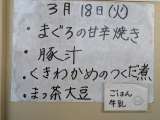 3月18日(火)
・まぐろの甘辛焼き
・豚汁
・くきわかめのつくだ煮
・まっ茶大豆
ごはん
牛乳